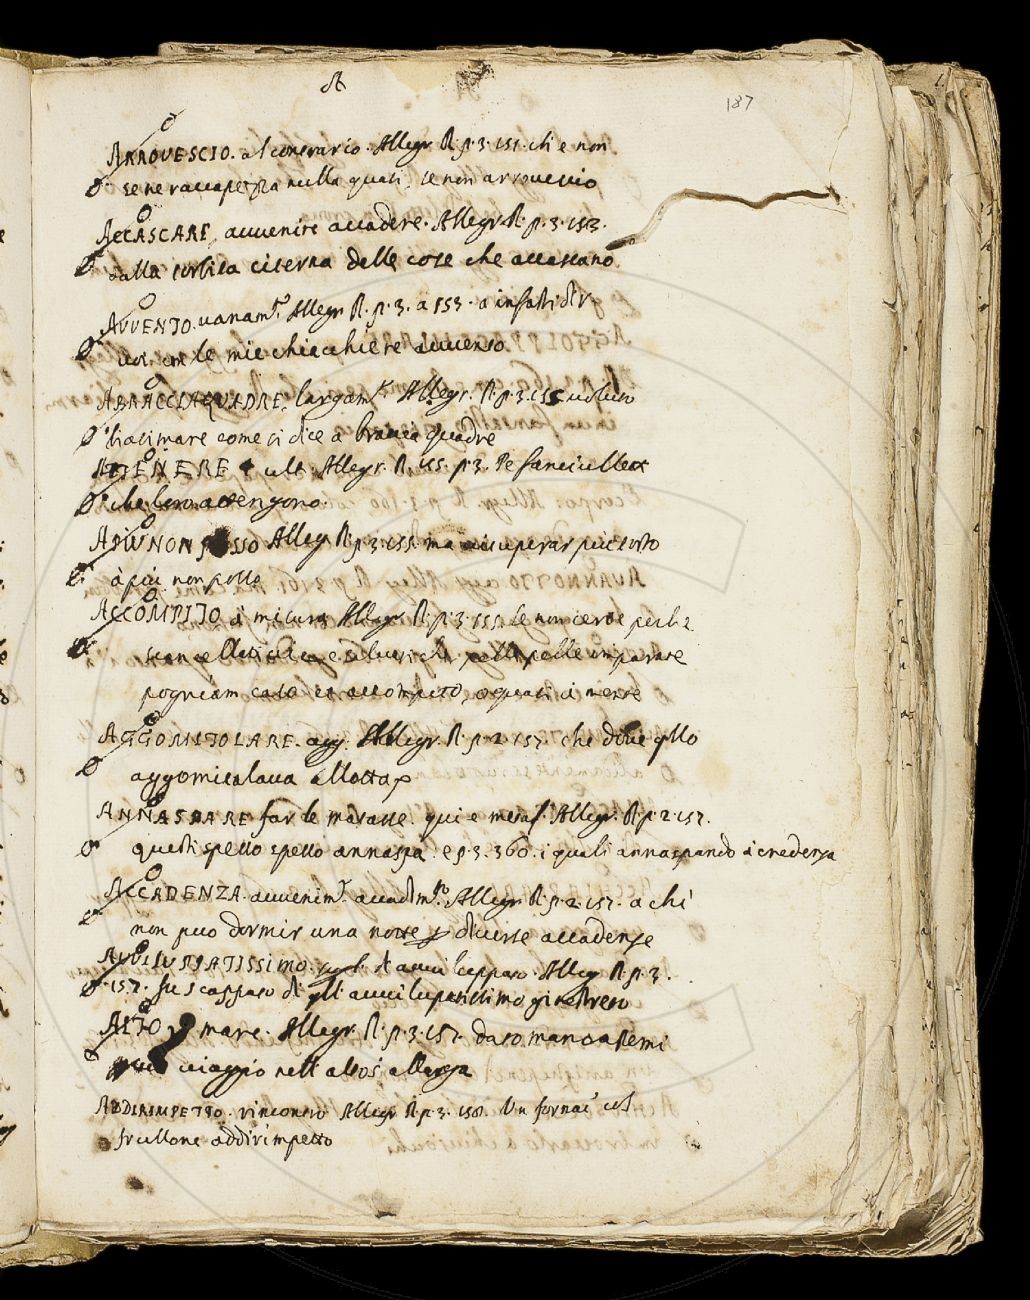 A
187
ARROVESCIO. al contrario. Allegr. R. p. 3. 151. chi e non
se ne raccapezza nulla quasi, se non arrovescio
ACCASCARE, avvenire accadere. Allegr. R. p. 3. 153.
dalla torbita citerna delle cose che accascano
AVVENTO. Allegr. R. p. 3. a 153. a infastidir
le mie chiacchiere avvento
ABRACCIAQUADRE. largam.e Allegr. R. p. 3. 155
biasimare come si dice a braccia quadre
ATTENERE Allegr. R. 155. p. 3. Le fanciullette
che loro attengono
APIUNON POSSO Allegr. R. p. 3. 155. ma
à piu non posso
ACCOMPITO à misura Allegr. R. p. 3. 155. Le non certe perche
pelle pelle imparate
pogniam caso et accompito, o quasi a mente
AGGOMITOLARE. Allegr. R. p. 2. 157. che dove qllo
aggomitolava allotta
ANNASPARE far le matasse. qui e metaf. Allegr. R. p. 2. 157.
questi spesso spesso annaspa: e p. 3. 360. i quali annaspando à credenza
ACCADENZA. avvenim.to accadim.to Allegr. R. p. 2. 157. a chi
non puo dormir una notte p diverse accadenze
AVVILUPPATISSIMO. superl. d'avviluppato. Allegr. R. p. 3.
157. fu scappato di qll' avviluppatissimo ginestreto
ALTO mare. Allegr. R. p. 3. 157. dato mano a Remi
viaggio nell' altos'allarga
ADDIRIMPETTO. rincontro Allegr. R. p. 3. 158. Un fornai' col
frullone addirimpetto